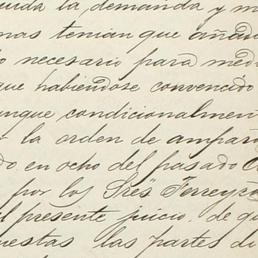 uida la demanda y m
mas tenian que añadi
lo necesario para med
que habiendose convencido
unque condicionalmen
la orden de amparo
do en ocho del pasado
por los Sres Ferreyro
l presente juicio, de qu
uestas las partes di